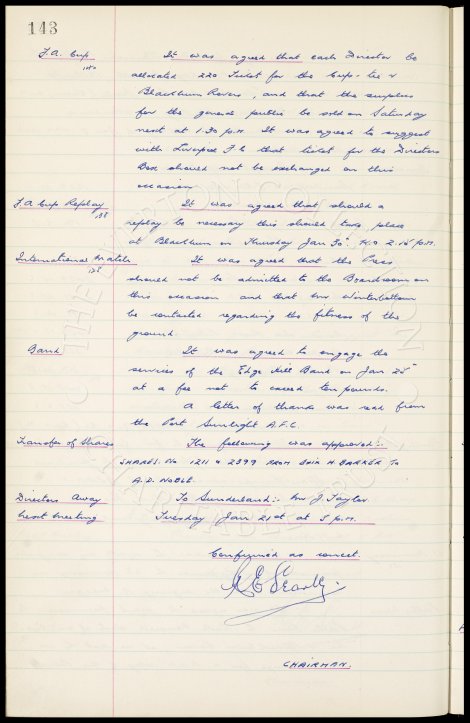 143
F.A. Cup
It was agreed that each Director be
allocated 220 Ticket for the Cup-tie v
Blackburn Rovers, and that the surplus
for the general public be sold on Saturday
next at 1.30 p.m. It was agreed to suggest
with Liverpool F.C that ticket for the Directors
Box should not be exchanged on this
occasion
F.A Cup Replay
It was agreed that should a
replay be necessary this should take place
at Blackburn on Thursday Jan 30th K.O 2.15 p.m.
International Match
It was agreed that the Press
should not be admitted to the Boardroom on
this occasion and that Mr Winterbottom
be contacted regarding the fitness of the
ground.
Band
It was agreed to engage the
services of the Edge Hill Band on Jan 25th
at a fee not to exceed ten pounds.
A letter of thanks was read from
the Port Sunlight A.F.C.
Transfer of Shares
The following was approved:-
SHARES. No 1211 & 2399 FROM H. BARKER TO
A.D. NOBLE.
Directors Away
To Sunderland:- Mr J Taylor.
Next Meeting
Tuesday Jan 21st at 5 p.m.
Confirmed as correct.
CHAIRMAN.
THE EVERTON COLLECTION
CHARITABLE TRUST